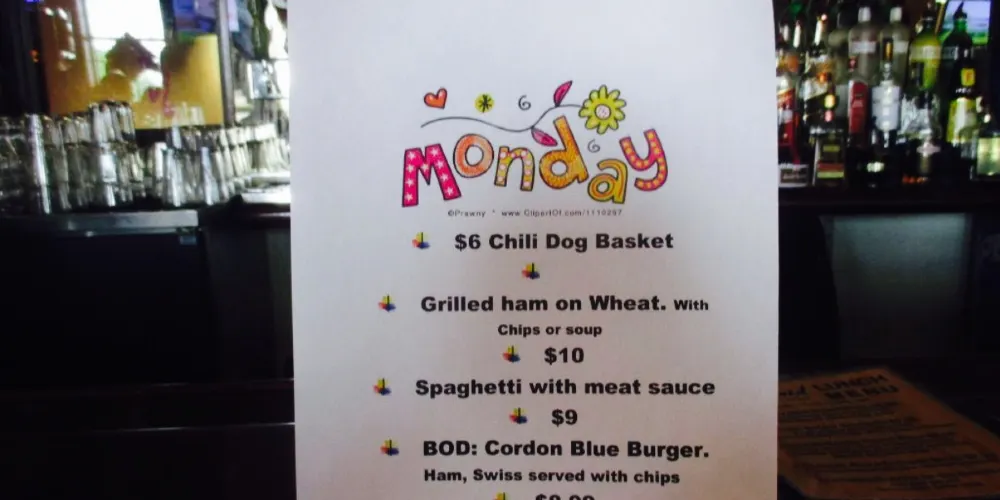 Monday
©Prawny * www.ClipartOf.com/1110297
$6 Chili Dog Basket
Grilled ham on Wheat. With
Chips or soup
$10
Spaghetti with meat sauce
$9
BOD: Cordon Blue Burger.
Ham, Swiss served with chips
LUNCH
MENU